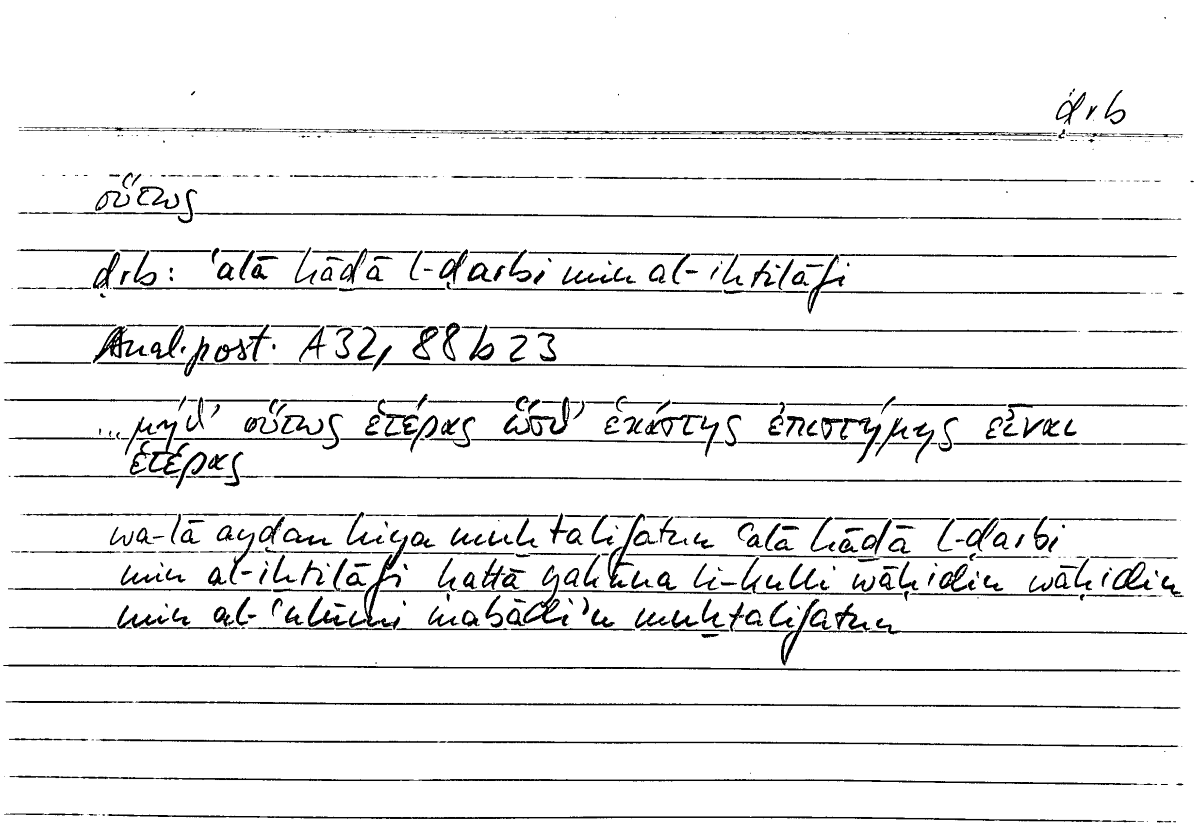 ḍrb
οὕτως
ḍrb: ʿalā hāḏā l-ḍarbi min al-iḫtilāfi
Anal. post. A 32, 88 b 23
...μήθ’ οὕτως ἑτέρας ὥσθ’ ἑκάστης ἐπιστήμης εἶναι
ἑτέρας
wa-lā ayḍan hiya muḫtalifatun ʿalā hāḏā l-ḍarbi
min al-iḫtilāfi ḥattā yakūna li-kulli wāḥidin wāḥidin
min al-ʿulūmi mabādiʾu muḫtalifatun